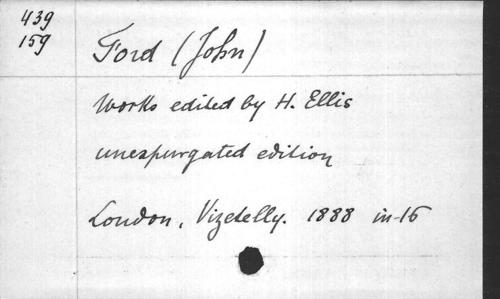 439
159
Ford (John)
Works edited by H. Ellis
unexpurgated edition
London, Vizetelly. 1888 in-16